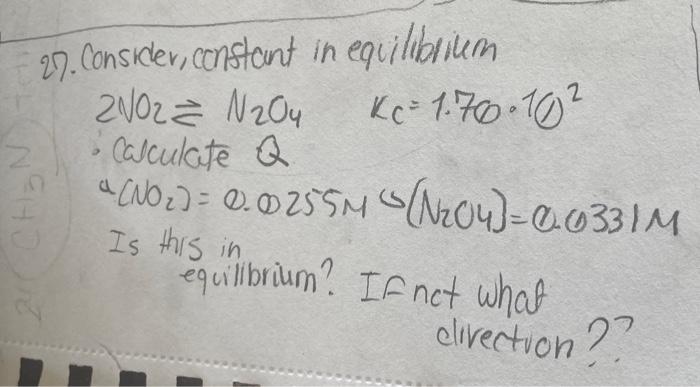 27. Consider, constant in equilibrium
2NO2 ⇌ N2O4 Kc = 1.70 · 10²
• Calculate Q
[NO2] = 0.00255M [N2O4] = 0.0331M
Is this in
equilibrium? If not what
direction??